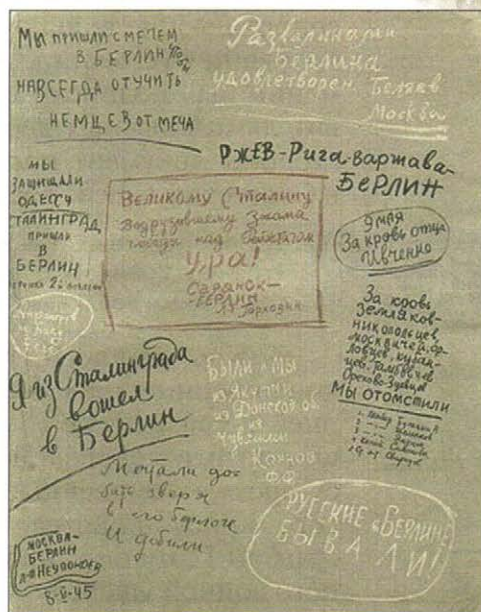 МЫ ПРИШЛИ С МЕЧЕМ
В БЕРЛИН
НАВСЕГДА ОТУЧИТЬ
НЕМЦЕВ ОТ МЕЧА
Развалинами
Берлина
удовлетворен. Беляев
Москва
РЖЕВ-РИГА-ВАРЖАВА-
БЕРЛИН
МЫ
ЗАЩИЩАЛИ
ОДЕССУ
СТАЛИНГРАД
ПРИШЛИ
В
БЕРЛИН
ВЕЛИКОМУ СТАЛИНУ
водрузившему знамя
победы над рейхстагом
УРА!
САРАНСК-
БЕРЛИН
9 МАЯ
За кровь отца
Ивченко
За кровь
земляков-
никопольцев,
москвичей, ор-
ловцев, курян-
цев, тамбовцев
Орехово-Зуевцев
МЫ ОТОМСТИЛИ
Я из Сталинграда
вошел
в Берлин
БЫЛИ И МЫ
из Якутии
из Донской об
из
Чувашии
Мечтали до-
бить зверя
в его берлоге
И добили
РУССКИЕ в БЕРЛИНЕ
БЫВАЛИ!
МОСКВА-
БЕРЛИН
Л-Т НЕУПОКОЕВ
8-V-45